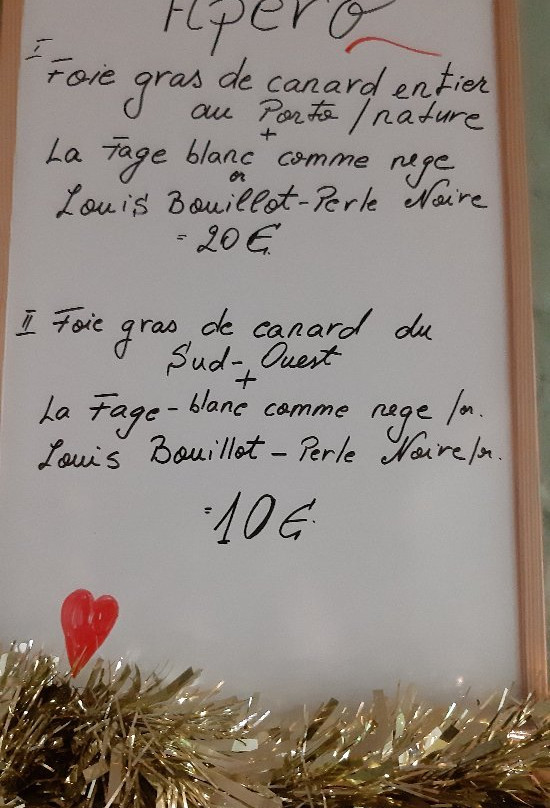 Apero
I
Foie gras de canard entier
au Porto / nature
+
La Fage blanc comme nege
or
Louis Bouillot-Perle Noire
= 20 €
II Foie gras de canard du
Sud-Ouest
+
La Fage-blanc comme nege /or.
Louis Bouillot-Perle Noire/or.
=10 €.